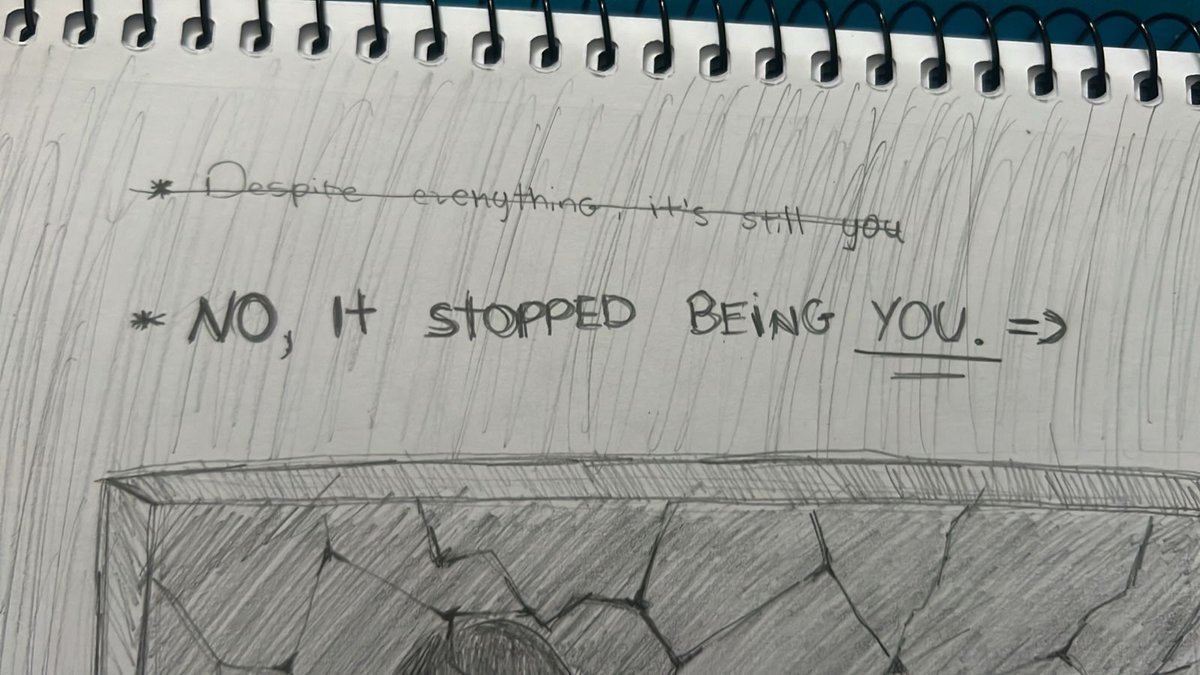 * Despite everything, it's still you
* NO, It StOPPED BEiNG YOU. =>